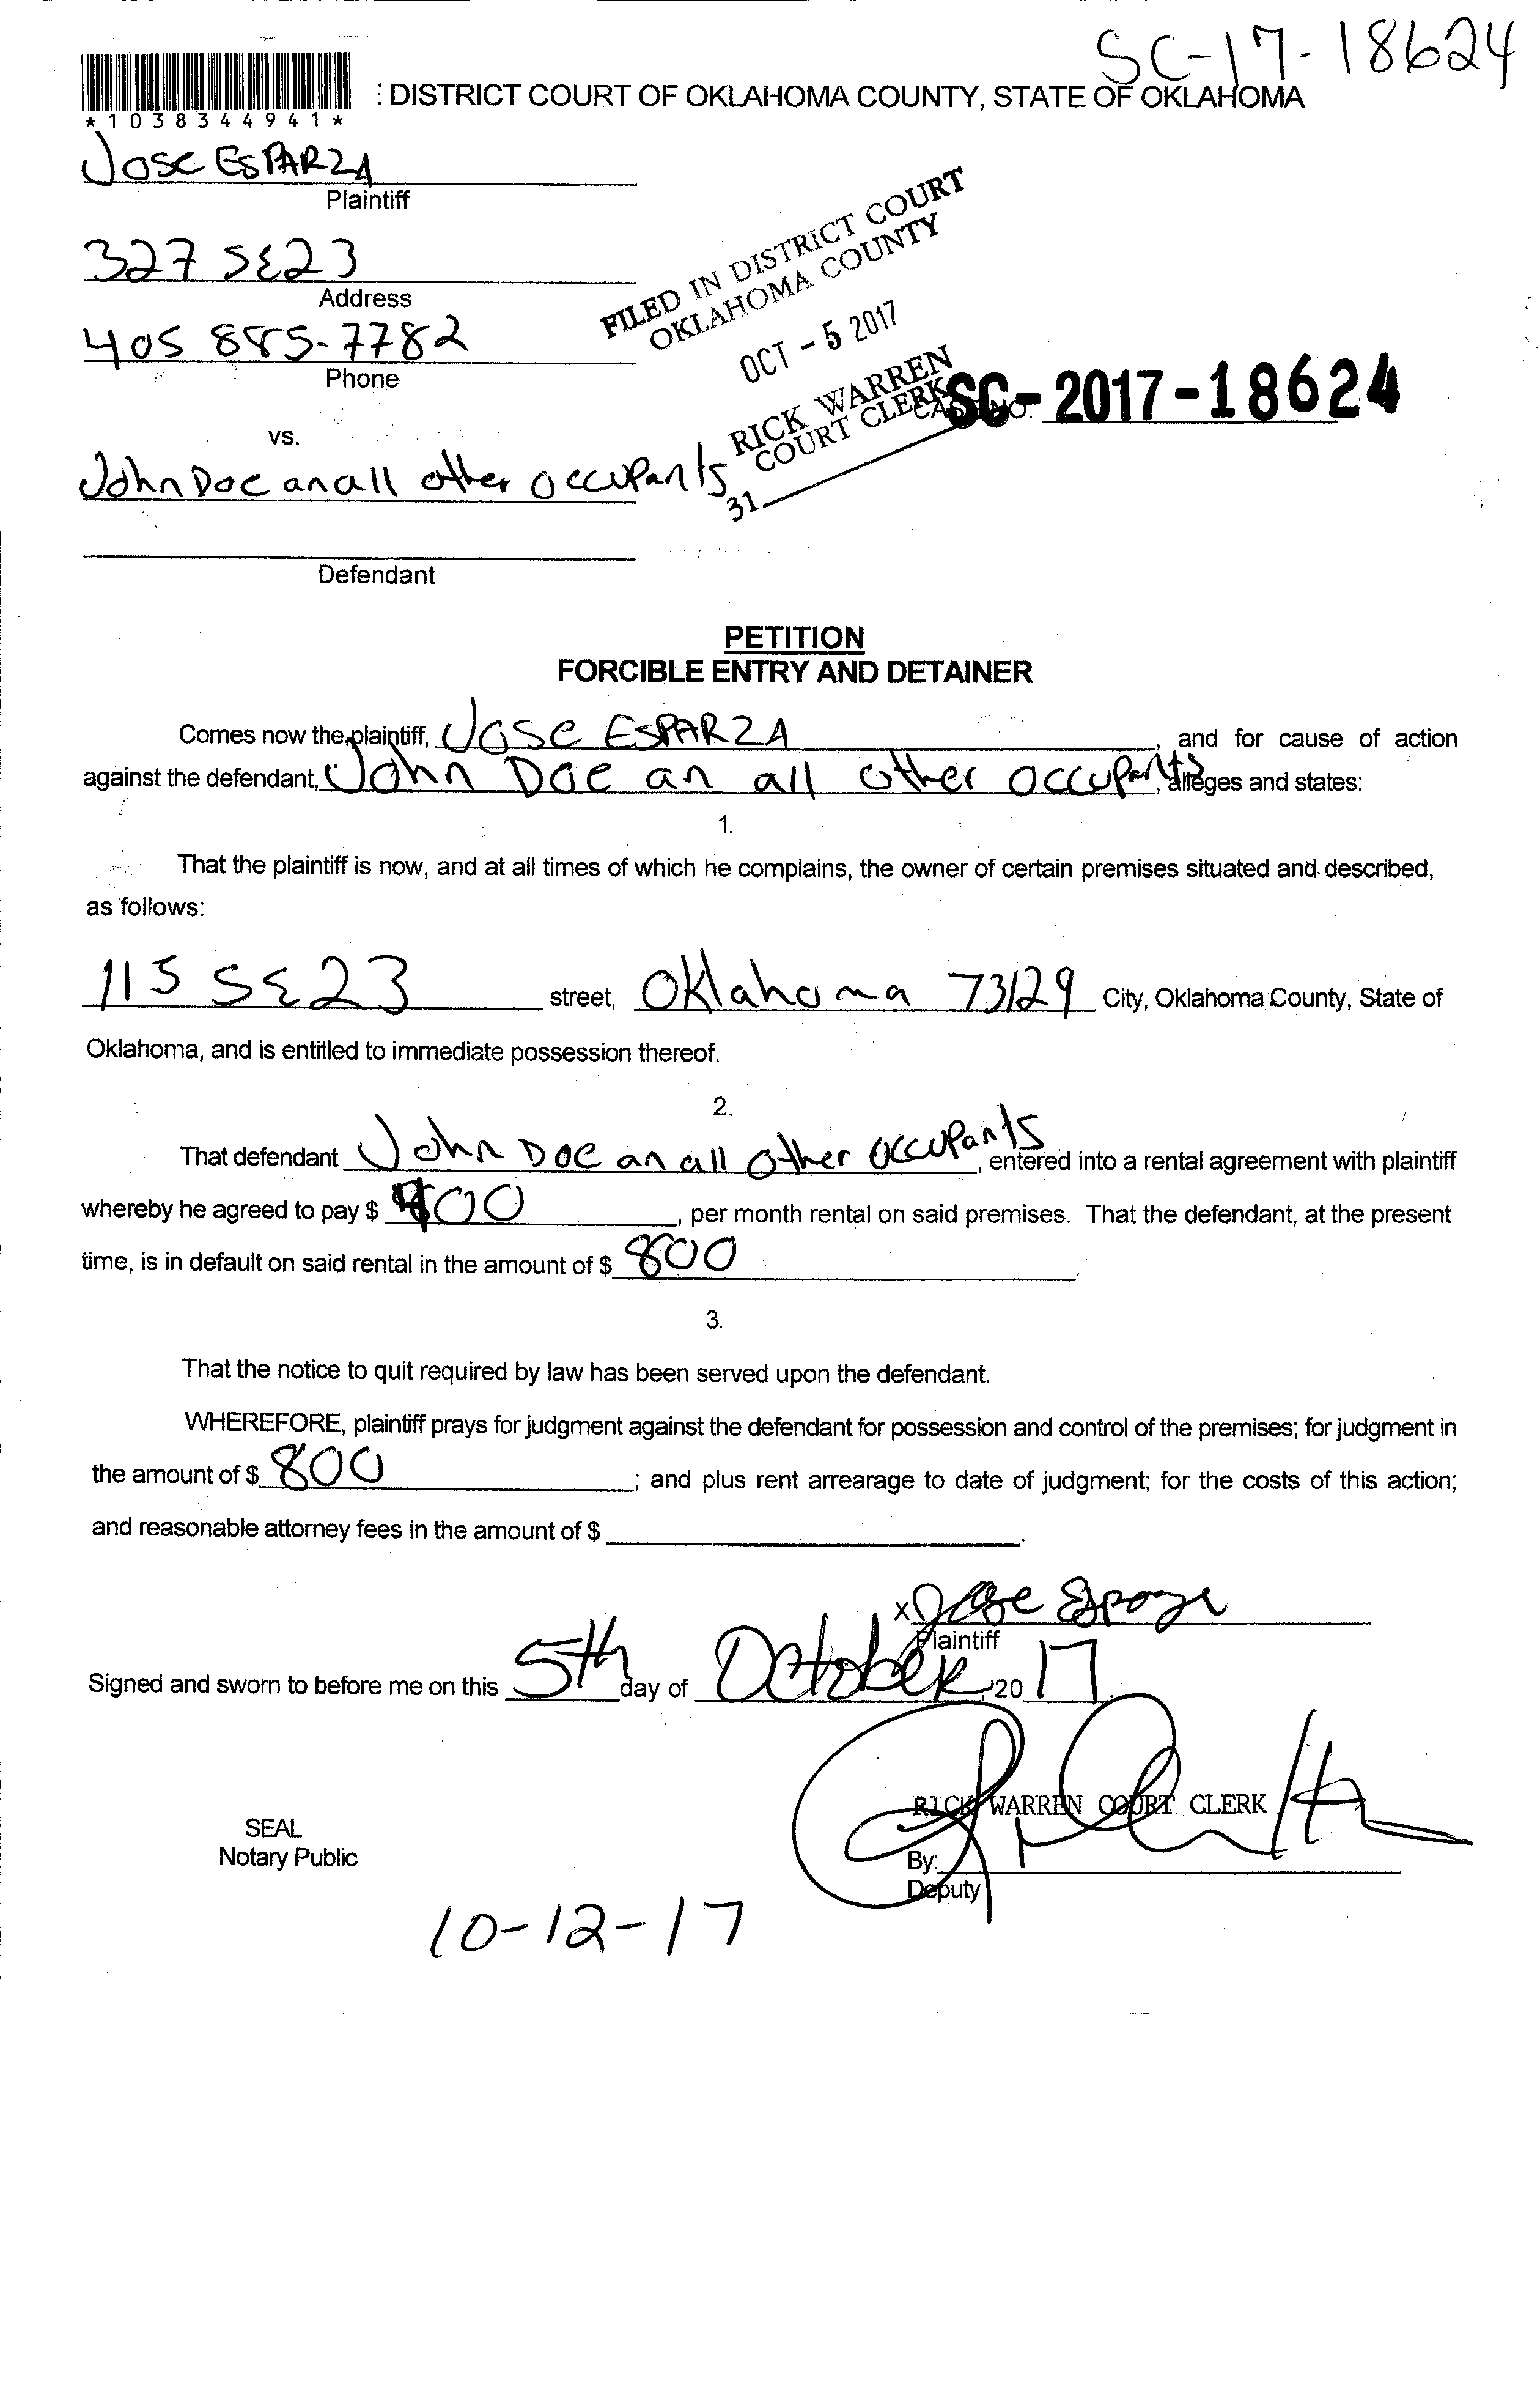 SC-17-18624
: DISTRICT COURT OF OKLAHOMA COUNTY, STATE OF OKLAHOMA
*1038344941*
Jose ESPARZA
Plaintiff
327 SE23
Address
405 885-7782
Phone
FILED IN DISTRICT COURT
OKLAHOMA COUNTY
OCT - 5 2017
RICK WARREN
COURT CLERK
31
SC-2017-18624
vs.
John Doe an all other occupants
Defendant
PETITION
FORCIBLE ENTRY AND DETAINER
Comes now the plaintiff, Jose ESPARZA, and for cause of action
against the defendant, John Doe an all other occupants, alleges and states:
1.
That the plaintiff is now, and at all times of which he complains, the owner of certain premises situated and described,
as follows:
115 SE23 street, Oklahoma 73129 City, Oklahoma County, State of
Oklahoma, and is entitled to immediate possession thereof.
2.
That defendant John Doe an all other occupants, entered into a rental agreement with plaintiff
whereby he agreed to pay $ 00, per month rental on said premises. That the defendant, at the present
time, is in default on said rental in the amount of $ 800.
3.
That the notice to quit required by law has been served upon the defendant.
WHEREFORE, plaintiff prays for judgment against the defendant for possession and control of the premises; for judgment in
the amount of $ 800; and plus rent arrearage to date of judgment; for the costs of this action;
and reasonable attorney fees in the amount of $ .
x Jose Esparza
Plaintiff
Signed and sworn to before me on this 5th day of October, 2017.
RICK WARREN COURT CLERK
SEAL
Notary Public
By:
Deputy
10-12-17